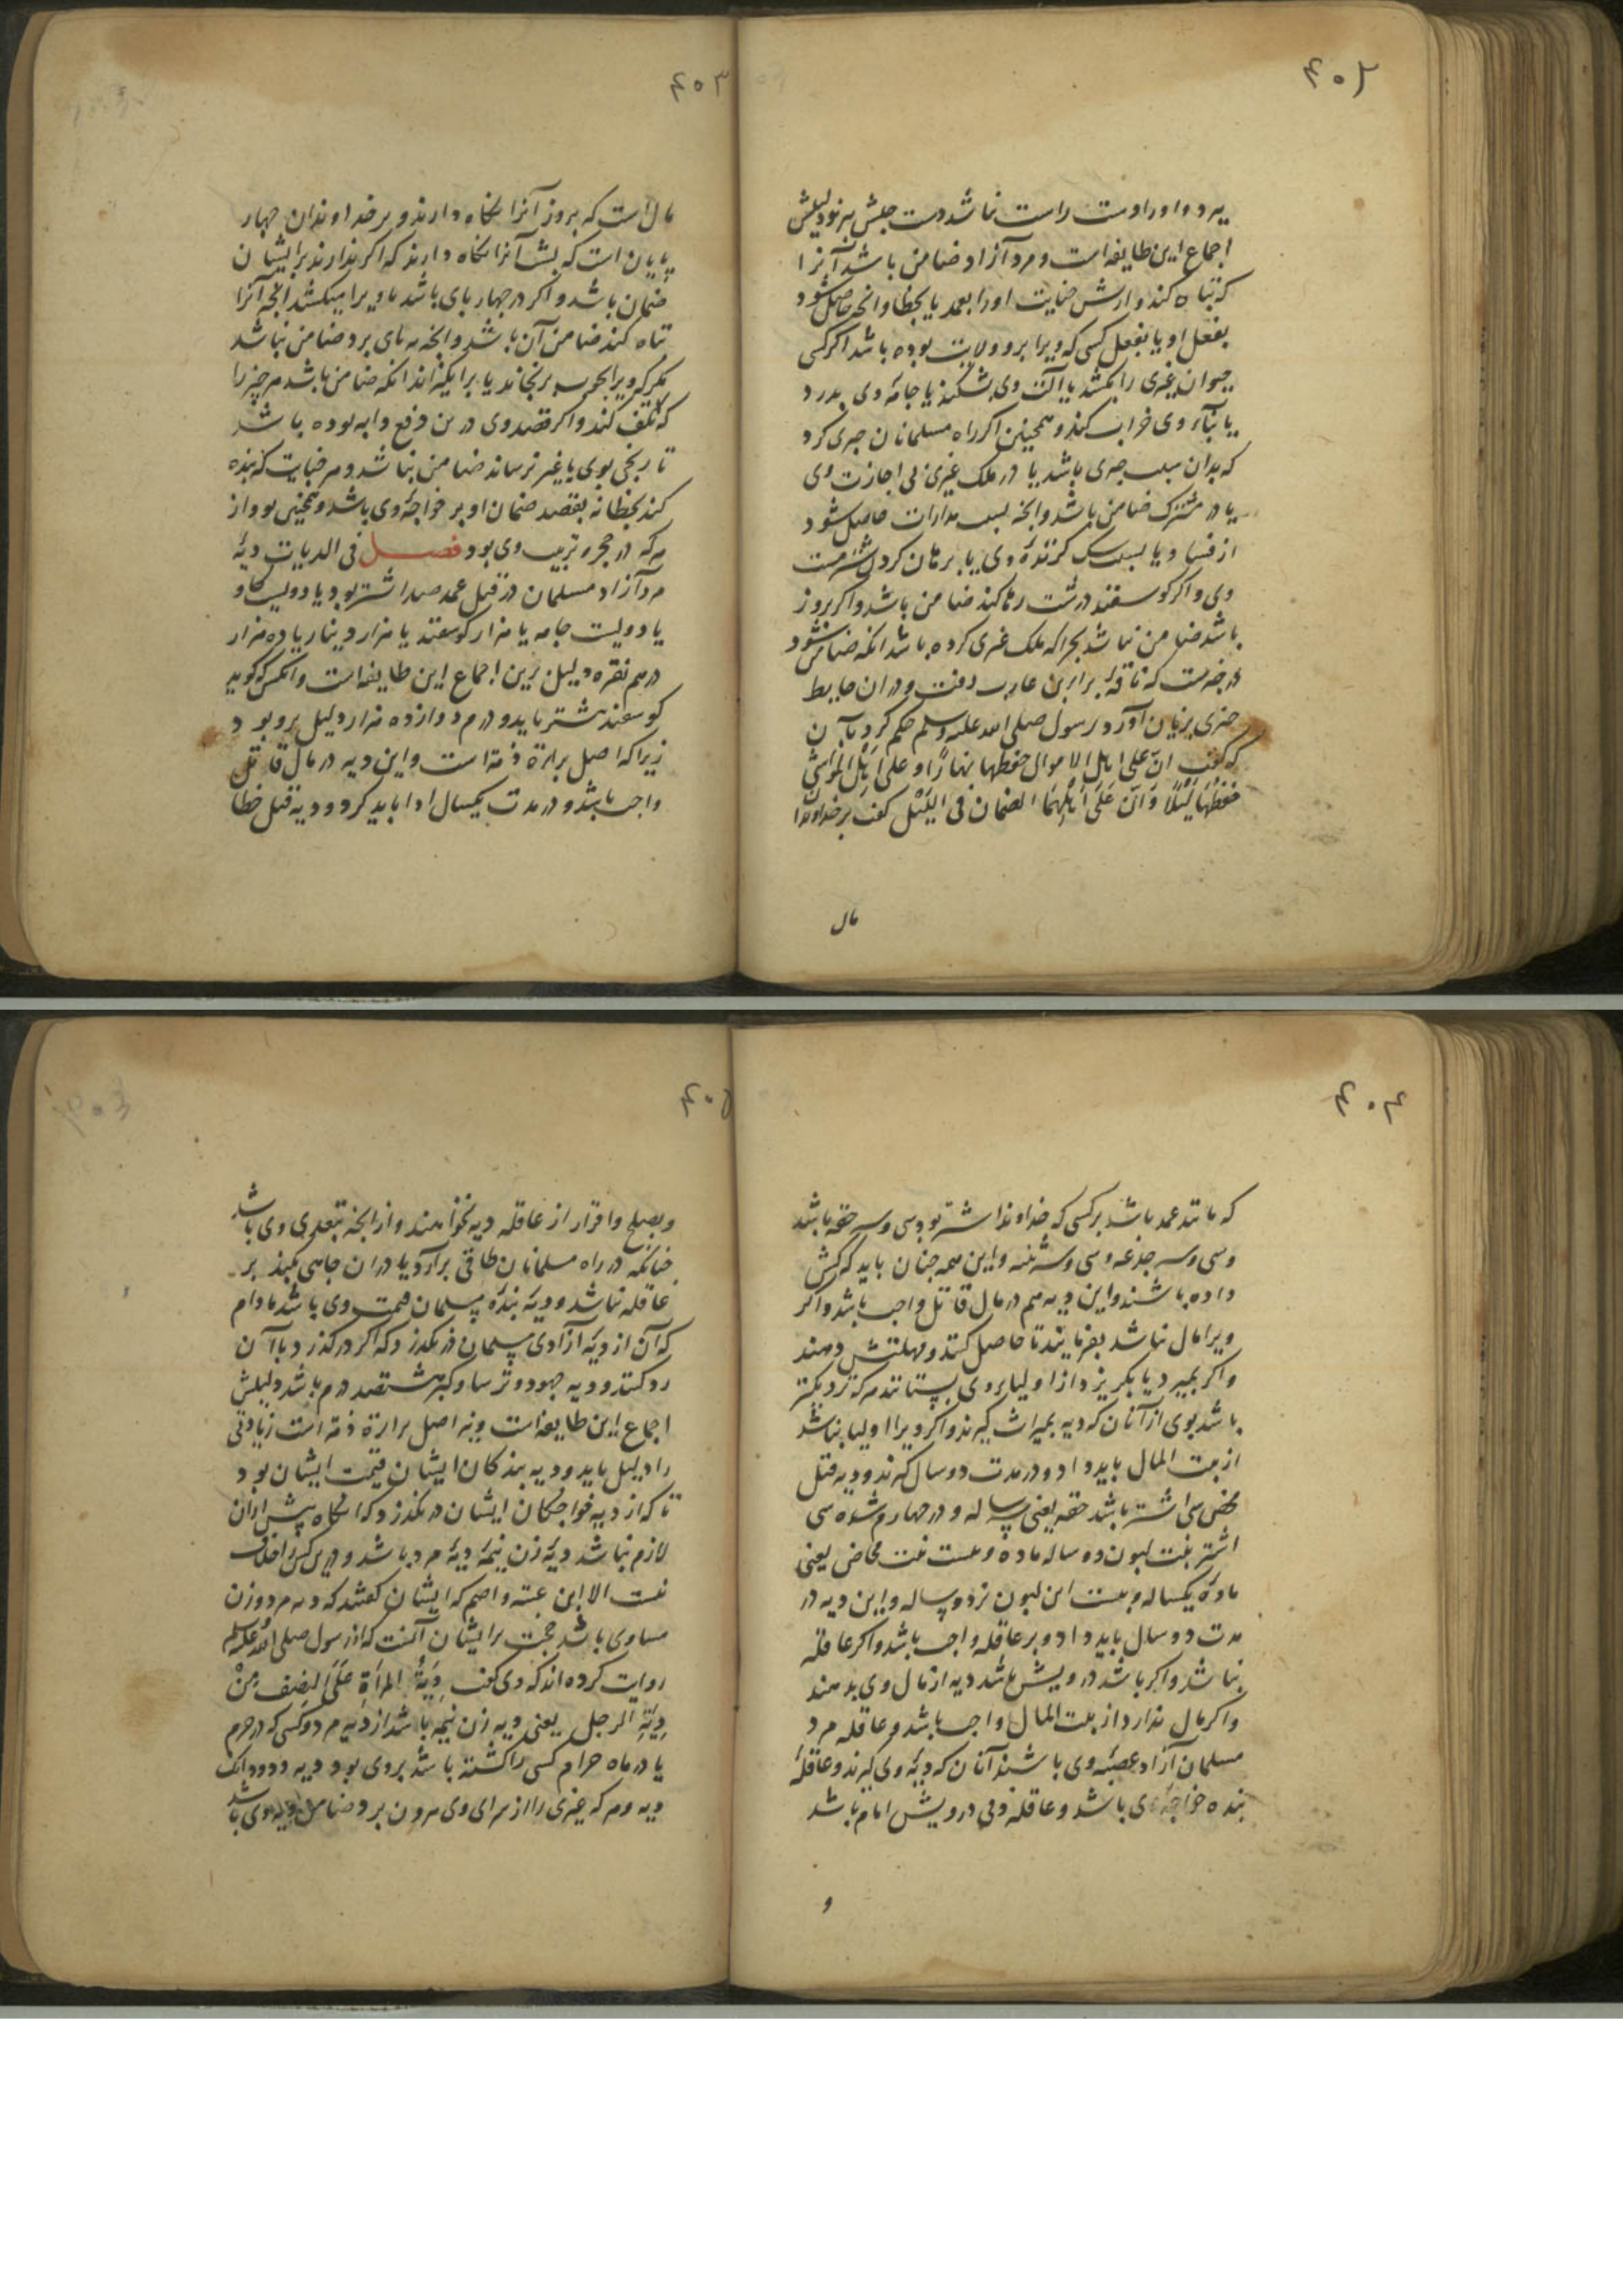 ۴۰۲
یرد و او را دست راست نباشد دست چپش ببرند دلیلش
اجماع این طایفه است و مرد آزاد ضامن باشد آنرا
که تباه کند و ارش جنایت او را بعمد یا بخطا و انچه حاصل شود
بفعل او یا بفعل کسی که ویرا برو ولایت بوده باشد اگر کسی
حیوان غیری را بکشد یا آلت وی بشکند یا جامه وی بدرد
یا بناء وی خراب کند و همچنین اگر راه مسلمانان چیزی کرد
که بدان سبب چیزی باشد یا در ملک غیری بی اجازت وی
یا در مشترک ضامن باشد و انچه بسبب مدارات حاصل شود
از فساد و یا بسبب سگ گزنده وی یا برمان کردن شتر مست
وی و اگر گوسفند در شب رها کند ضامن باشد و اگر بروز
باشد ضامن نباشد بچراکه ملک غیری کرده باشد انگه ضامن شود
در خبرست که ناقه براء بن عازب رفت و در آن حایط
چیزی بزیان آورد رسول صلی الله علیه و سلم حکم کرد بآن
که گفت انّ علی اهل الاموال حفظها نهارًا و علی اهل المواشی
حفظها لیلًا و انّ علی اهلها الضمان فی اللیل گفت بر خداوندان
مال
۴۰۳
مال است که بروز آنرا نگاه دارند و بر خداوندان چهار
پایان است که بشب آنرا نگاه دارند که اگر ندارند بر ایشان
ضمان باشد و اگر در چهار پای باشد یا ویرا میکشد انچه آنرا
تباه کند ضامن آن باشد و انچه بپای برد ضامن نباشد
مگر که ویرا بچوب برنجاند یا برانگیزاند انگه ضامن باشد هر چیز را
که تلف کند و اگر قصد وی درین دفع دابه بوده باشد
تا رنجی بوی یا غیر نرساند ضامن نباشد و هر جنایت که بنده
کند بخطا نه بقصد ضمان او بر خواجه وی باشد و همچنین بود از
هرکه در حجر و تربیت وی بود فصل فی الدیات دیهٔ
مرد آزاد مسلمان در قتل عمد صد اشتر بود یا دویست گاو
یا دویست جامه یا هزار گوسفند یا هزار دینار یا ده هزار
درهم نقره دلیل برین اجماع این طایفه است و انکس که گوید
گوسفند بیشتر باید و درم دوازده هزار دلیل برو بود
زیرا که اصل براءة ذمّه است و این دیه در مال قاتل
واجب باشد و در مدت یکسال ادا باید کرد و دیه قتل خطا
۴۰۴
که مانند عمد باشد بر کسی که خداوند اشتر بود سی و سه حقه باشد
و سی و سه جذعه و سی و سه ثنیه و این همه چنان باید که گشن
داده باشند و این دیه هم در مال قاتل واجب باشد و اگر
ویرا مال نباشد بفرمایند تا حاصل کند و مهلتش دهند
و اگر بمیرد یا بگریزد از اولیاء وی بستانند هر که نزدیکتر
باشد بوی از آنان که دیه بمیراث گیرند و اگر ویرا اولیا نباشد
از بیت المال باید داد و در مدت دو سال گیرند و دیه قتل
محض سی اشتر باشد حقه یعنی سه ساله و در چهارم شده سی
اشتر بنت لبون دو ساله ماده و بیست بنت مخاض یعنی
ماده یکساله و بیست ابن لبون نر دو ساله و این دیه در
مدت دو سال باید داد و بر عاقله واجب باشد و اگر عاقله
نباشد و اگر باشد درویش باشد دیه از مال وی بدهند
و اگر مال ندارد از بیت المال واجب باشد و عاقله مرد
مسلمان آزاد عصبهٔ وی باشند آنان که دیهٔ وی گیرند و عاقله
بنده خواجه وی باشد و عاقله ذمی درویش امام باشد
و
۴۰۵
و بصلح و اقرار از عاقله دیه نخواهند و از انچه بتعدی وی باشد
چنانکه در راه مسلمانان طاقی برآرد یا در آن چاهی بکند بر
عاقله نباشد و دیهٔ بنده مسلمان قیمت وی باشد مادام
که آن از دیهٔ آزادی مسلمان در نگذرد که اگر در گذرد باآن
رد کنند و دیه جهود و ترسا و گبر هشتصد درم باشد دلیلش
اجماع این طایفه است و نه اصل براءة ذمّه است زیادتی
را دلیل باید و دیه بندگان ایشان قیمت ایشان بود
تا که از دیه خواجگان ایشان در نگذرد که انگاه بیش از آن
لازم نباشد دیهٔ زن نیمهٔ دیهٔ مرد باشد و درین کس را خلاف
نیست الا ابن عتبه و اصم که ایشان گفتند که دیه مرد و زن
مساوی باشد حجت بر ایشان آنست که از رسول صلی الله علیه و سلم
روایت کرده‌اند که وی گفت دِیَةُ المرأةِ عَلَی النصف مِنْ
دِیَةِ الرجل یعنی دیه زن نیمه باشد از دیه مرد و کسی که در حرم
یا در ماه حرام کسی را کشته باشد بر وی بود دیه و دو دانگ
دیه و هر که غیری را از سرای وی بیرون برد ضامن دیه وی باشد